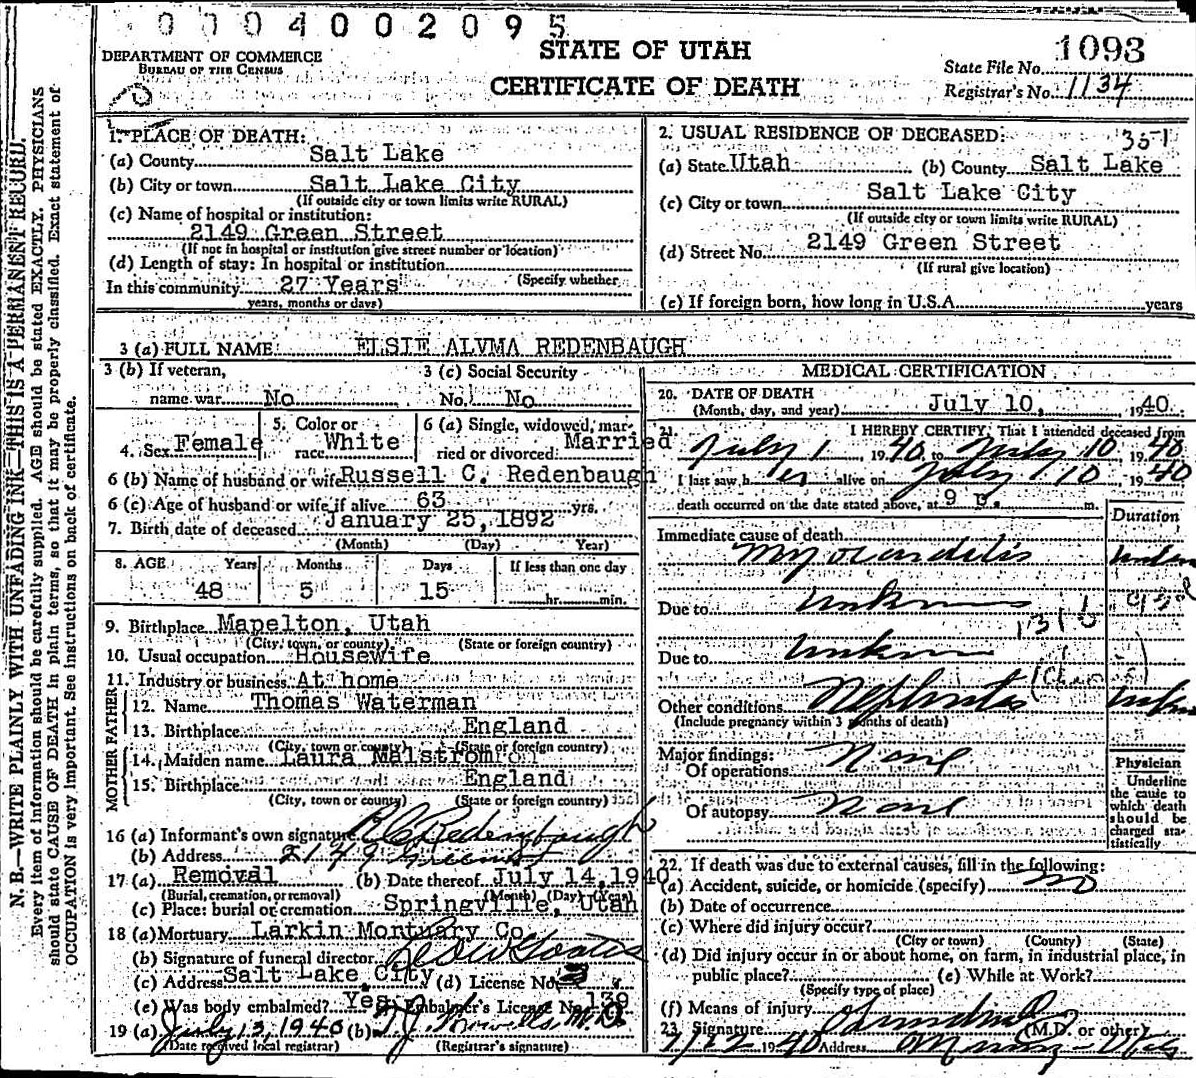 0004002095
DEPARTMENT OF COMMERCE
BUREAU OF THE CENSUS
STATE OF UTAH
CERTIFICATE OF DEATH
1093
State File No.
Registrar's No. 1134
1. PLACE OF DEATH:
(a) County Salt Lake
(b) City or town Salt Lake City
(If outside city or town limits write RURAL)
(c) Name of hospital or institution:
2149 Green Street
(If not in hospital or institution give street number or location)
(d) Length of stay: In hospital or institution
(Specify whether
In this community 27 Years
years, months or days)
2. USUAL RESIDENCE OF DECEASED: 351
(a) State Utah (b) County Salt Lake
(c) City or town Salt Lake City
(If outside city or town limits write RURAL)
(d) Street No. 2149 Green Street
(If rural give location)
(e) If foreign born, how long in U.S.A. years
3 (a) FULL NAME ELSIE ALVMA REDENBAUGH
3 (b) If veteran, name war No
3 (c) Social Security No. No
4. Sex Female
5. Color or race White
6 (a) Single, widowed, married or divorced: Married
6 (b) Name of husband or wife Russell C. Redenbaugh
6 (c) Age of husband or wife if alive 63 yrs.
7. Birth date of deceased January 25, 1892
(Month) (Day) Year)
8. AGE Years Months Days If less than one day
48 5 15 hr. min.
9. Birthplace Mapelton, Utah
(City, town, or county) (State or foreign country)
10. Usual occupation Housewife
11. Industry or business At home
FATHER
12. Name Thomas Waterman
13. Birthplace England
(City, town or county) (State or foreign country)
MOTHER
14. Maiden name Laura Malstrom
15. Birthplace England
(City, town or county) (State or foreign country)
16 (a) Informant's own signature R C Redenbaugh
(b) Address 2149 Green St
17 (a) Removal (b) Date thereof July 14, 1940
(Burial, cremation, or removal) (Month) (Day) (Year)
(c) Place: burial or cremation Springville, Utah
18 (a) Mortuary Larkin Montuary Co.
(b) Signature of funeral director
(c) Address Salt Lake City (d) License No.
(e) Was body embalmed? Yes Embalmer's License No. 139
19 (a) July 13, 1940 (b) M.D.
(Date received local registrar) (Registrar's signature)
MEDICAL CERTIFICATION
20. DATE OF DEATH
(Month, day, and year) July 10, 1940
21. I HEREBY CERTIFY, That I attended deceased from
July 1, 1940, to July 10 1940
I last saw her alive on July 10, 1940
death occurred on the date stated above, at 9 p. m.
Duration
Immediate cause of death
Myocarditis
Due to
Due to
Other conditions Nephritis
(Include pregnancy within 3 months of death)
Major findings:
Of operations None
Of autopsy None
Physician
Underline the cause to which death should be charged statistically
22. If death was due to external causes, fill in the following:
(a) Accident, suicide, or homicide (specify) no
(b) Date of occurrence
(c) Where did injury occur?
(City or town) (County) (State)
(d) Did injury occur in or about home, on farm, in industrial place, in
public place? (e) While at Work?
(Specify type of place)
(f) Means of injury
23. Signature (M.D. or other)
7/22 1940 Address
N. B.—WRITE PLAINLY WITH UNFADING INK—THIS IS A PERMANENT RECORD.
Every item of information should be carefully supplied. AGE should be stated EXACTLY. PHYSICIANS
should state CAUSE OF DEATH in plain terms, so that it may be properly classified. Exact statement of
OCCUPATION is very important. See instructions on back of certificate.